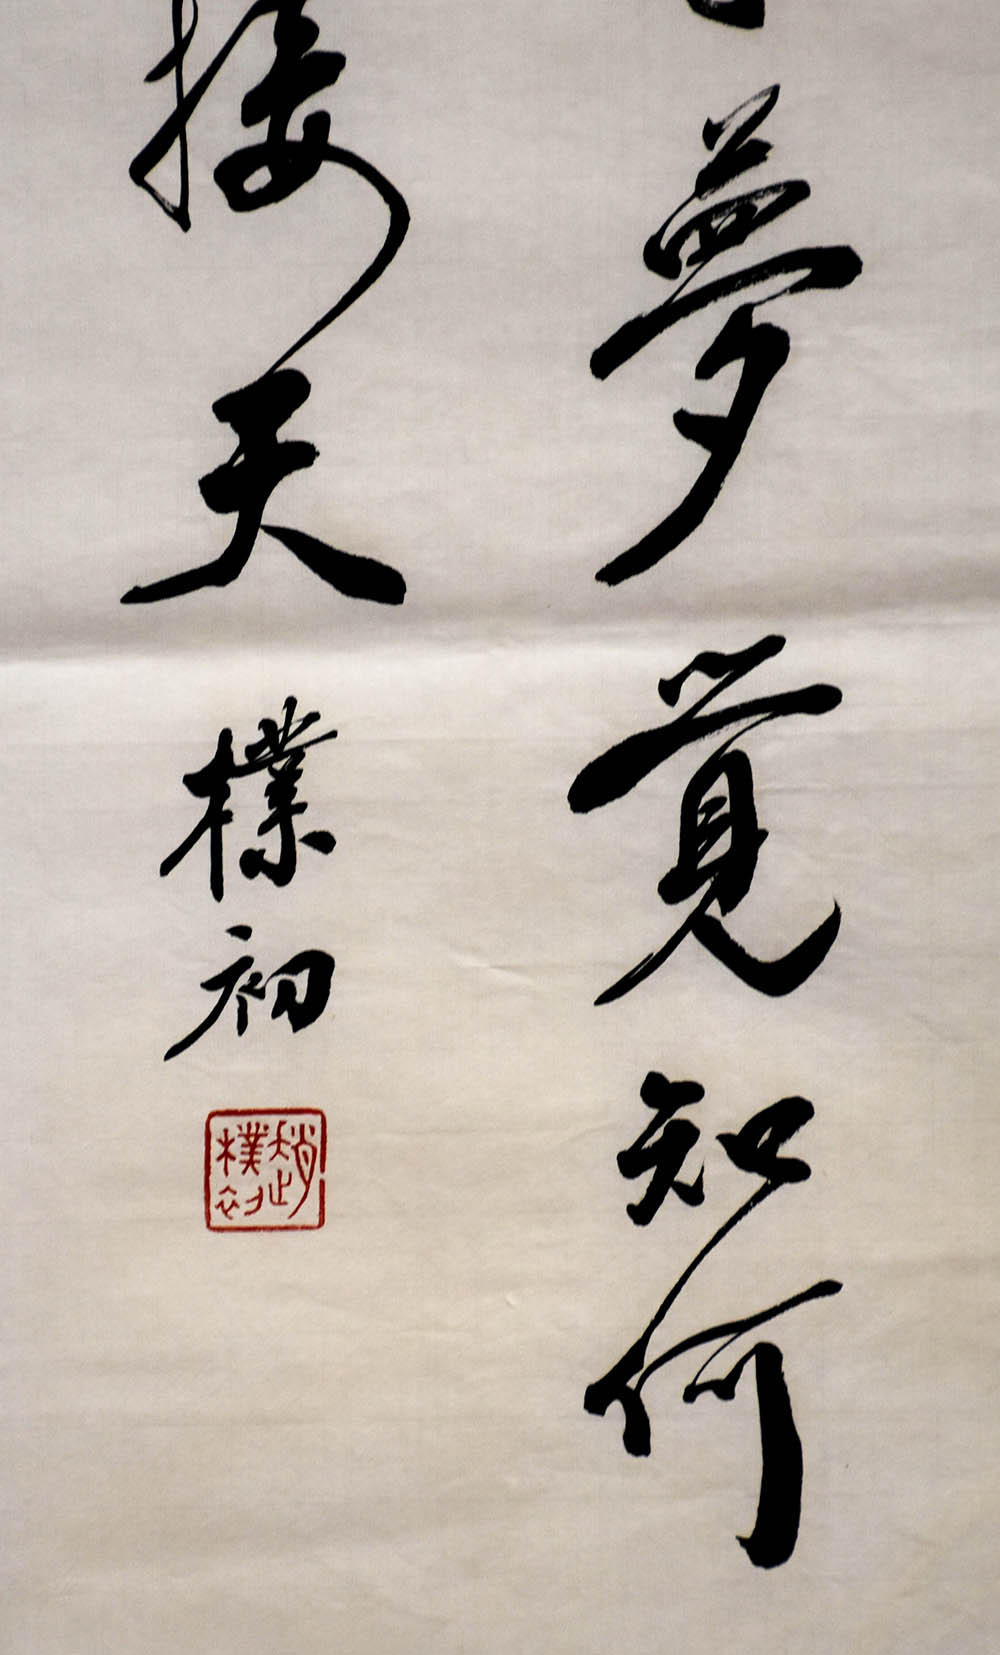 夢覺知何
接天
樸初
趙樸初